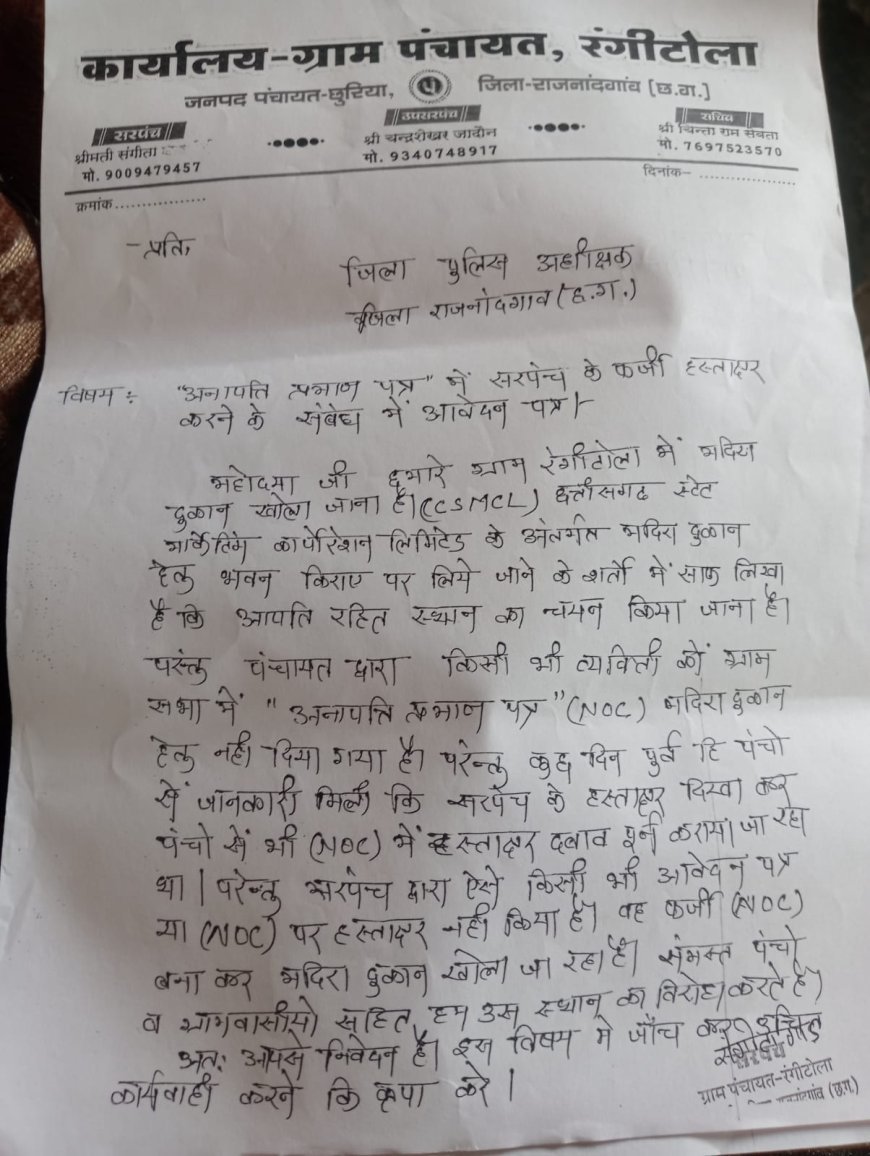 कार्यालय-ग्राम पंचायत, रंगीटोला
जनपद पंचायत-छुरिया, जिला-राजनांदगांव (छ.ग.)
सरपंच उपसरपंच सचिव
श्रीमती संगीता श्री चन्द्रशेखर जादौन श्री चिन्ता राम
मो. 9009479457 मो. 9340748917 मो. 7697523570
क्रमांक................. दिनांक- .................
प्रति,
जिला पुलिस अधीक्षक
जिला राजनांदगाव (छ.ग.)
विषय :- "अनापत्ति प्रमाण पत्र" में सरपंच के फर्जी हस्ताक्षर
करने के संबंध में आवेदन पत्र।-
महोदया जी हमारे ग्राम रंगीटोला में मदिरा
दुकान खोला जाना है। (CSMCL) छत्तीसगढ स्टेट
मार्केटिंग कार्पोरेशन लिमिटेड के अंतर्गत मदिरा दुकान
हेतु भवन किराए पर लिये जाने के शर्तो में साफ लिखा
है कि आपति रहित स्थान का चयन किया जाना है।
परंतु पंचायत द्वारा किसी भी व्यक्ति को ग्राम
सभा में " अनापत्ति प्रमाण पत्र" (NOC) मदिरा दुकान
हेतु नही दिया गया है। परंन्तु कुछ दिन पुर्व हि पंचो
सें जानकारी मिली कि सरपंच के हस्ताक्षर दिखा कर
पंचो सें भी (NOC) में हस्ताक्षर दबाव पुर्न कराया जा रहा
था। परंन्तु सरपंच द्वारा ऐसे किसी भी आवेदन पत्र
या (NOC) पर हस्ताक्षर नही किया है। वह फर्जी (NOC)
बना कर मदिरा दुकान खोला जा रहा है। संमस्त पंचो
व ग्रामवासीयो सहित हम उस स्थान का विरोध करते है।
अतः आपसे निवेदन है। इस विषय मे जाँच कर उचित
कार्यवाही करने कि कृपा करे।
सरपंच
ग्राम पंचायत-रंगीटोला
(छग.)